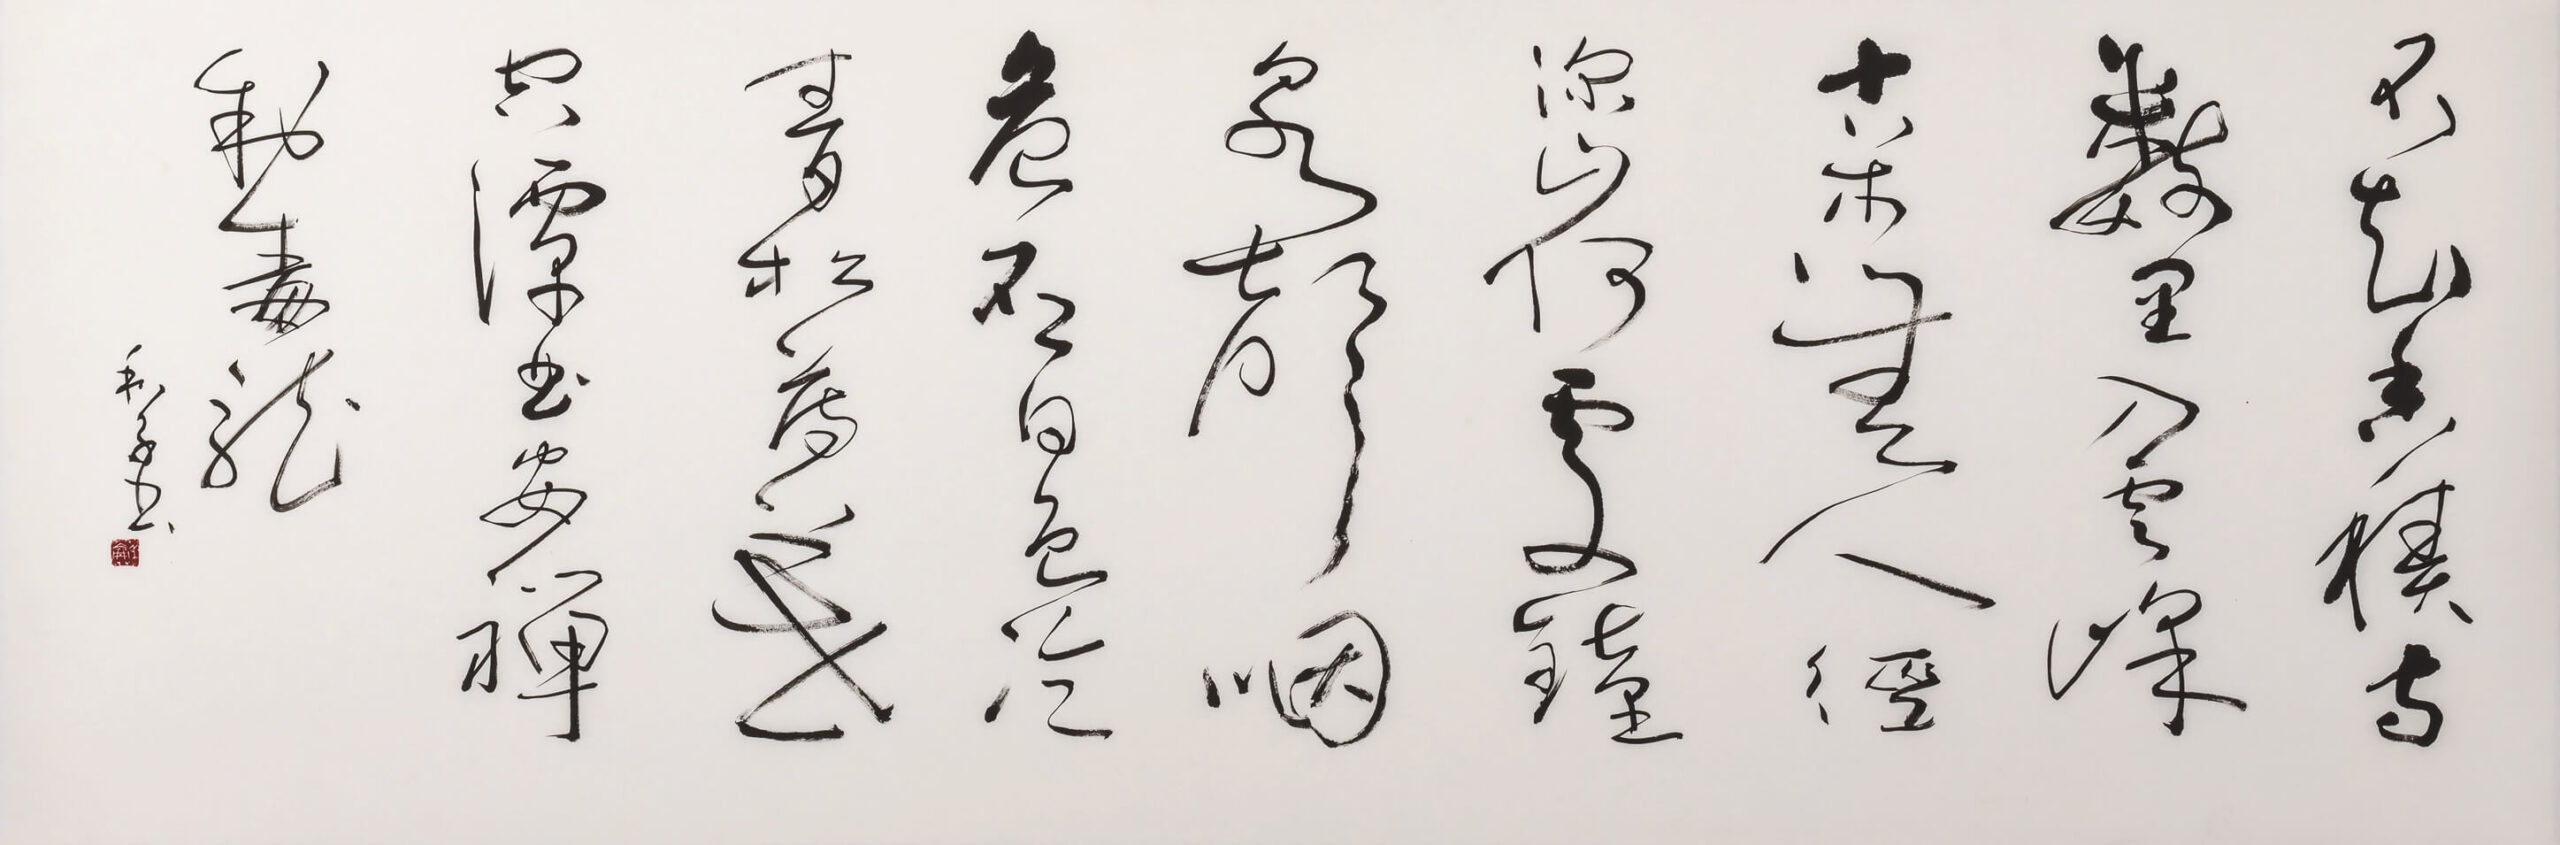 不知香積寺
數里入雲峰
古木無人徑
深山何處鐘
泉聲咽
危石日色冷
青松薄暮
空潭曲安禪
制毒龍